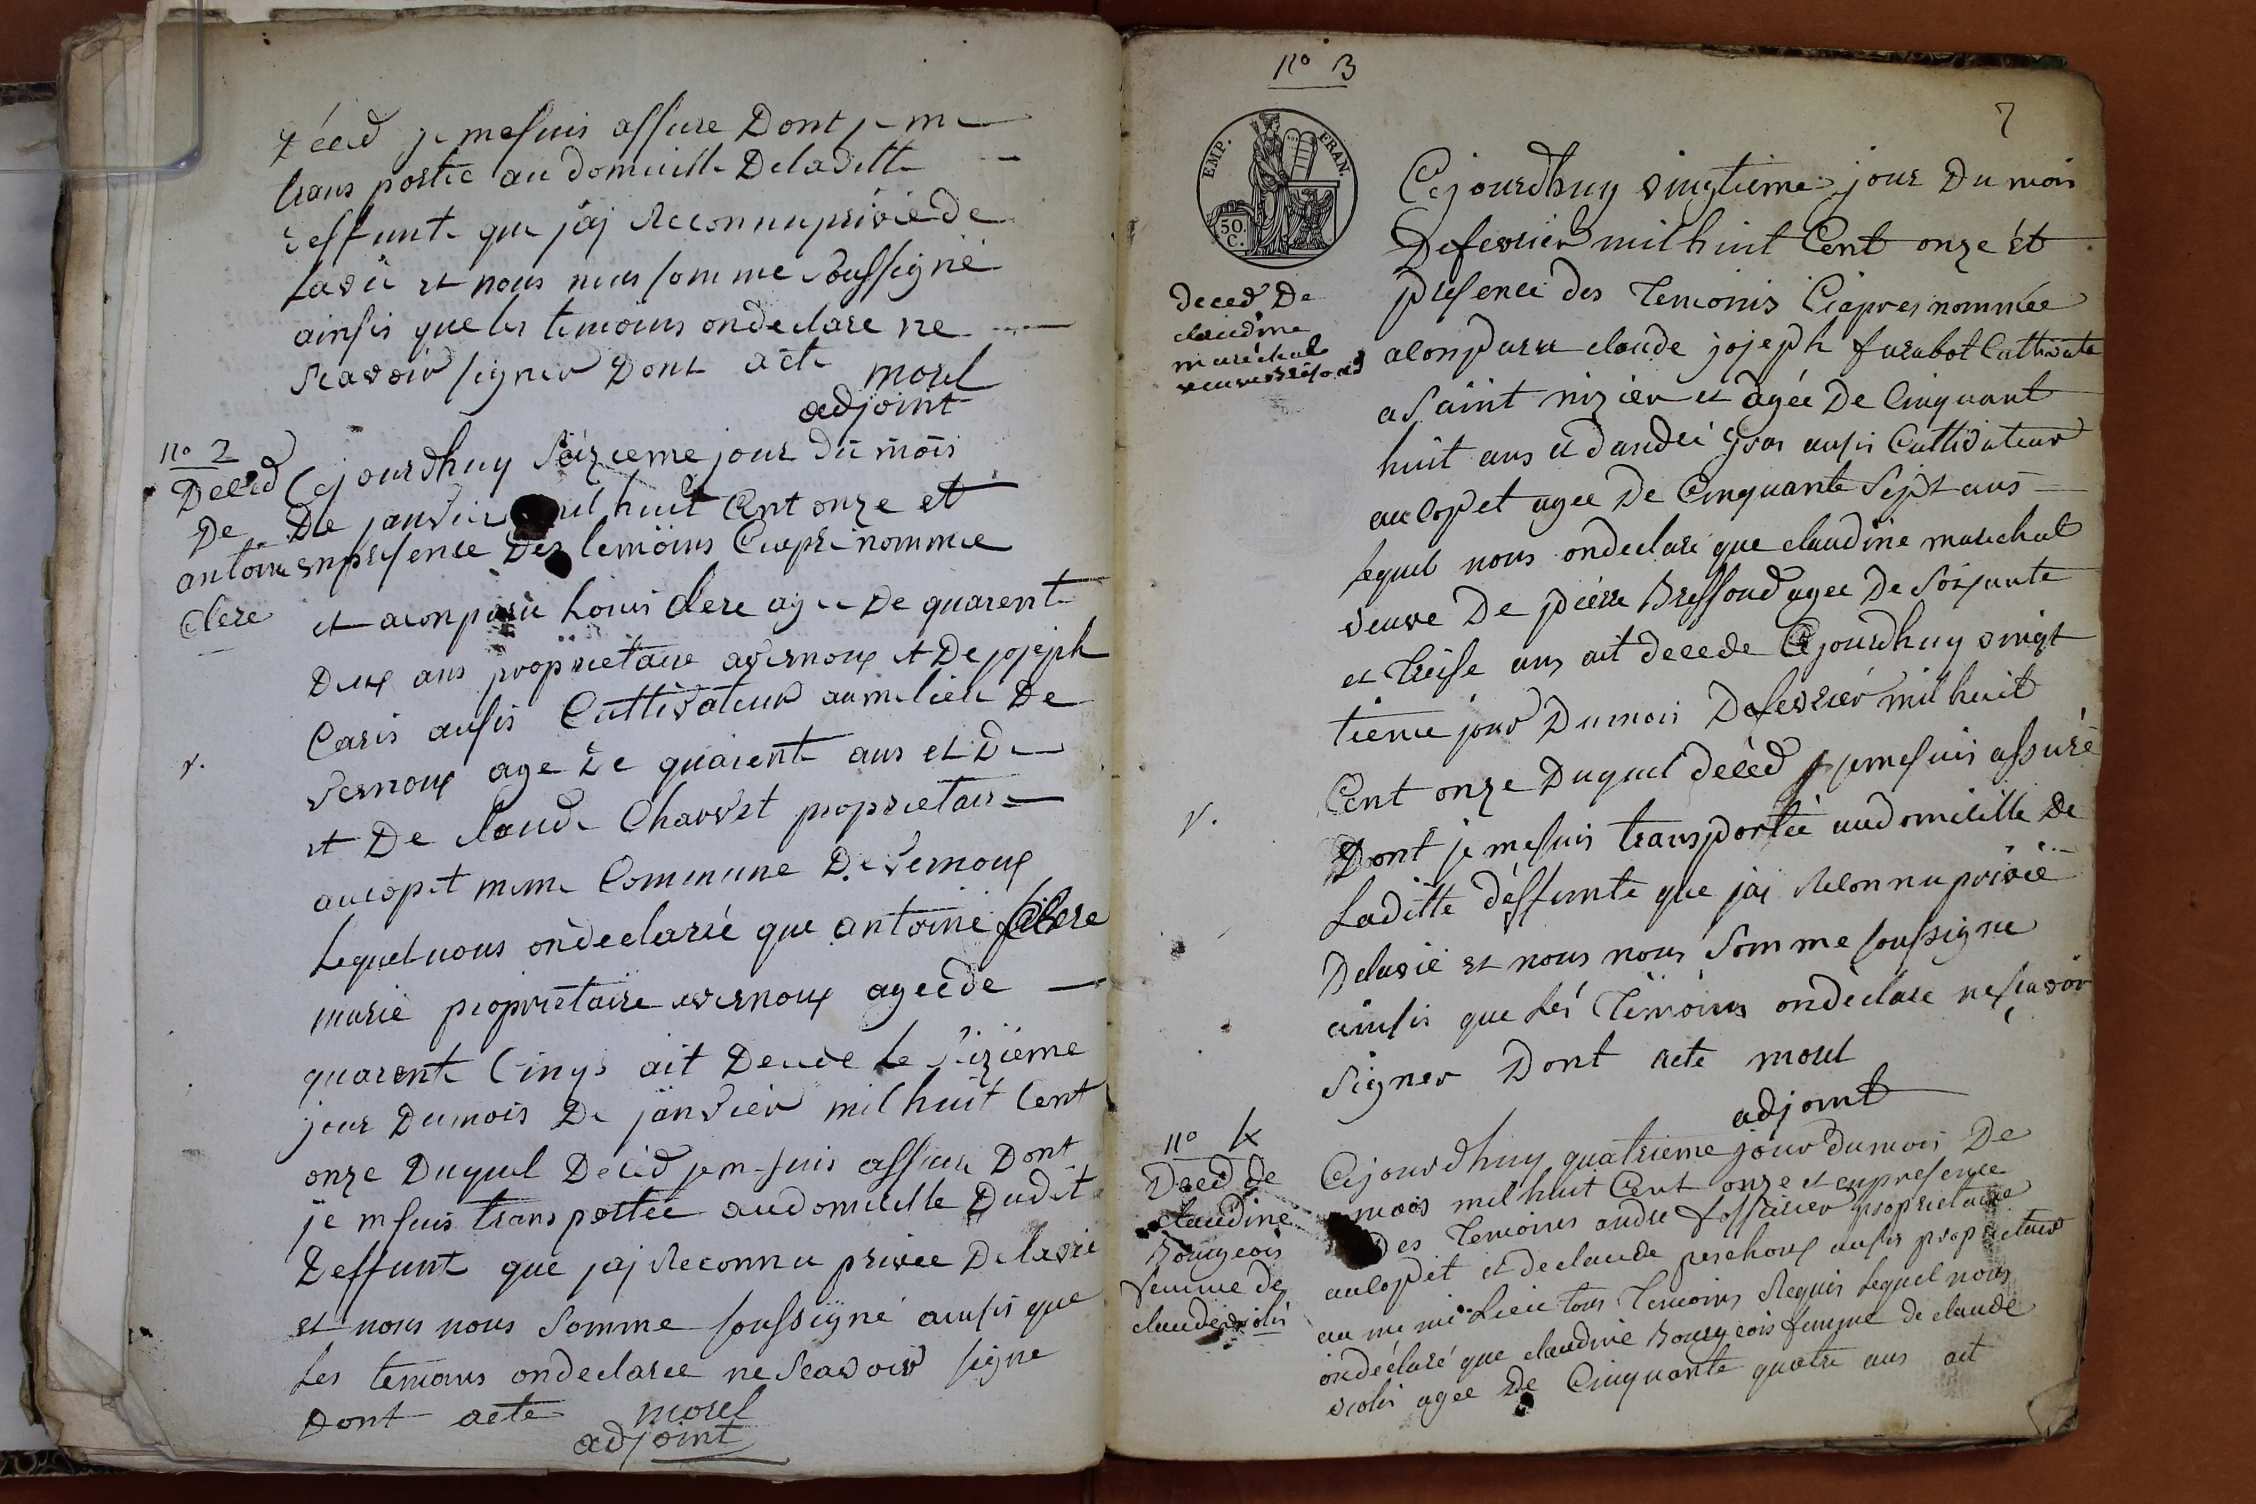 déced je me suis assure Dont je me
trans portée au domicille De laditte
deffunte que j'aj Reconnu privée de
La vie et nous nous somme soussigné
ainsis que les temoins on declare ne
scavoir signer Dont acte morel
adjoint
n° 2
Deced
De
antoine
Clere
Cejourdhuy séizieme jour du mois
De janvier mil huit Cent onze et
enpresence Des temoins Ciapré nommee
et aconparu Louis Clere agee De quarent
Deux ans proprietaire avernoux et De jojeph
Caris ausis Cultivateur au milieu De
Vernoux age de quarent ans et De
et De claude Charvet proprietaire
au copet meme Commune De Vernoux
Lequel nous on declarée que antoine Clere
marié proprietaire avernoux ageé de
quarente Cinqs ait Decede Le seizieme
jour Dumois De janvier mil huit Cent
onze Duquel Deced je me suis assure Dont
je me suis trans portée au domicille Dudit
Deffunt que jaj Reconnu privee De la vie
et nous nous somme soussigné ainsis que
Les temoins on declaree ne scavoir signe
Dont acte morel
adjoint
v.
n° 3
7
EMP. FRAN.
50. C.
deced De
claudine
maréchal
veuve Bresoud
Cejourdhuy vingtieme jour Du mois
De fevrier mil huit Cent onze Et
presence des temoins Ciapres nommée
aconparu claude jojeph furabot Cultivate
a Saint nizier et agée De Cinquant
huit ans et dandré gros ausis Cultivateur
au copet agee De Cinquante Sept ans
lequel nous on declaré que claudine marechal
veuve De piérre Bressoud agee De Soixante
et treise ans ait decede Cejourdhuy vingt
tiéme jour Du mois De fevriér mil huit
Cent onze Duquel décéd je me suis assuré
Dont je me suis transportée au domicille De
Laditte déffunte que jaj Reconnu privée
De la vie et nous nous Somme soussigne
ainsis que Les témoins on declare ne scavoir
signer Dont acte morel
adjoint
v.
n° 4
Deced de
claudine
Bourgeois
femme de
claude violi
Cejourdhuy quatrieme jour dumois De
mars mil huit Cent onze et enpresence
Des temoins andre fossurier proprietaire
au copet et de claude perchoux ausis proprietaire
au me mi Lieu tous temoins Requis Lequel nous
on declaré que claudine Bourgeois femme de claude
violi agee De Cinquante quatre ans ait